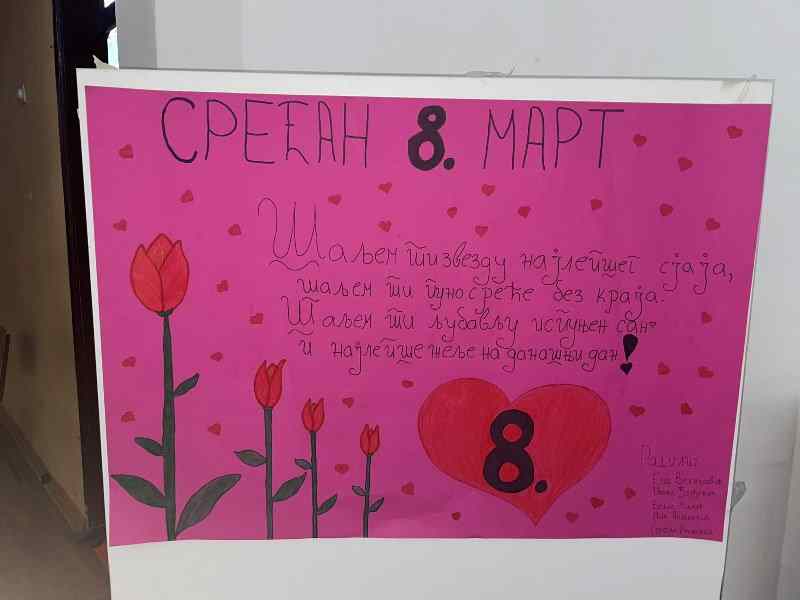 СРЕЋАН 8. МАРТ
Шаљем ти звезду најлепшег сјаја,
шаљем ти пуно среће без краја.
Шаљем ти љубављу испуњен сан
и најлепше жеље на данашњи дан!
8.
Радили: